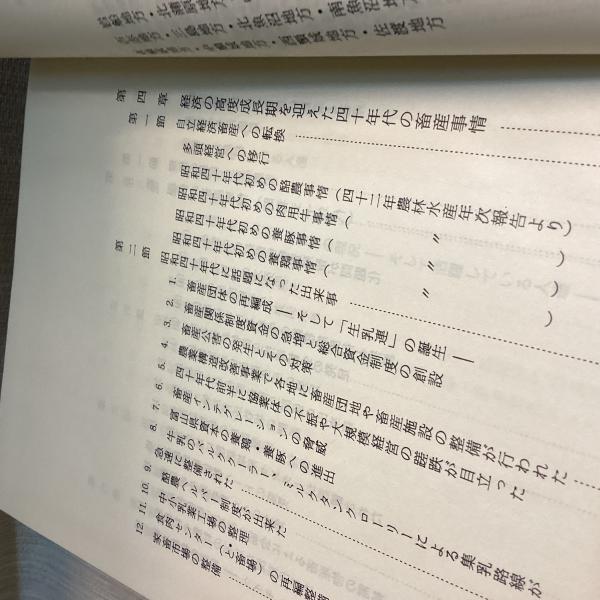 岩船地方・北蒲原地方・北魚沼地方・南魚沼地方・佐渡地方
第四章　経済の高度成長期を迎えた四十年代の畜産事情
第一節　自立経済畜産への転換
多頭経営への移行
昭和四十年代初めの酪農事情（四十二年農林水産年次報告より）
昭和四十年代初めの肉用牛事情（　〃　）
昭和四十年代初めの養豚事情（　〃　）
昭和四十年代初めの養鶏事情（　〃　）
第二節　昭和四十年代に話題になった出来事
1. 畜産団体の再編成―そして「生乳連」の誕生―
2. 畜産関係制度資金の急増と総合資金制度の創設
3. 畜産公害の発生とその対策
4. 農業構造改善事業で各地に畜産団地や畜産施設の整備が行われた
5. 四十年代前半に協業体の不振や大規模経営の蹉跌が目立った
6. 畜産インテグレーションの脅威
7. 富山県資本の養鶏・養豚への進出
8. 牛乳のバルククーラー、ミルクタンクローリーによる集乳路線が
急速に整備された
9. 酪農ヘルパー制度が出来た
10. 中小乳業工場の整理
11. 食肉センター（と畜場）の再編整備
12. 家畜市場の整備